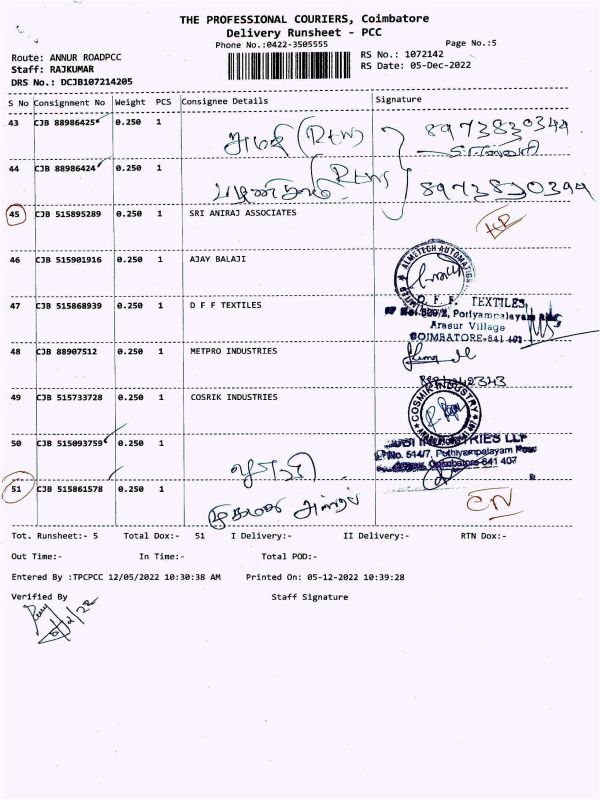 THE PROFESSIONAL COURIERS, Coimbatore
Delivery Runsheet - PCC
Phone No.:0422-3505555
Page No.:5
Route: ANNUR ROADPCC
RS No.: 1072142
Staff: RAJKUMAR
RS Date: 05-Dec-2022
DRS No.: DCJB107214205
S No Consignment No Weight PCS Consignee Details Signature
43 CJB 88986425 0.250 1
(Rtns) 8973830344
44 CJB 88986424 0.250 1
(Rtns) 8973830344
45 CJB 515895289 0.250 1 SRI ANIRAJ ASSOCIATES
46 CJB 515901916 0.250 1 AJAY BALAJI
ALMETECH AUTOMATION LIMITED
47 CJB 515868939 0.250 1 D F F TEXTILES
D. F. F. TEXTILES,
Poriyampalayam
Arasur Village
COIMBATORE-641 407
48 CJB 88907512 0.250 1 METPRO INDUSTRIES
49 CJB 515733728 0.250 1 COSRIK INDUSTRIES
COSMIK INDUSTRY
50 CJB 515093759 0.250 1
INDUSTRIES LLP
No. 514/7, Pothiyampalayam
Coimbatore-641 407
51 CJB 515861578 0.250 1
CN
Tot. Runsheet:- 5 Total Dox:- 51 I Delivery:- II Delivery:- RTN Dox:-
Out Time:- In Time:- Total POD:-
Entered By :TPCPCC 12/05/2022 10:30:38 AM Printed On: 05-12-2022 10:39:28
Verified By Staff Signature